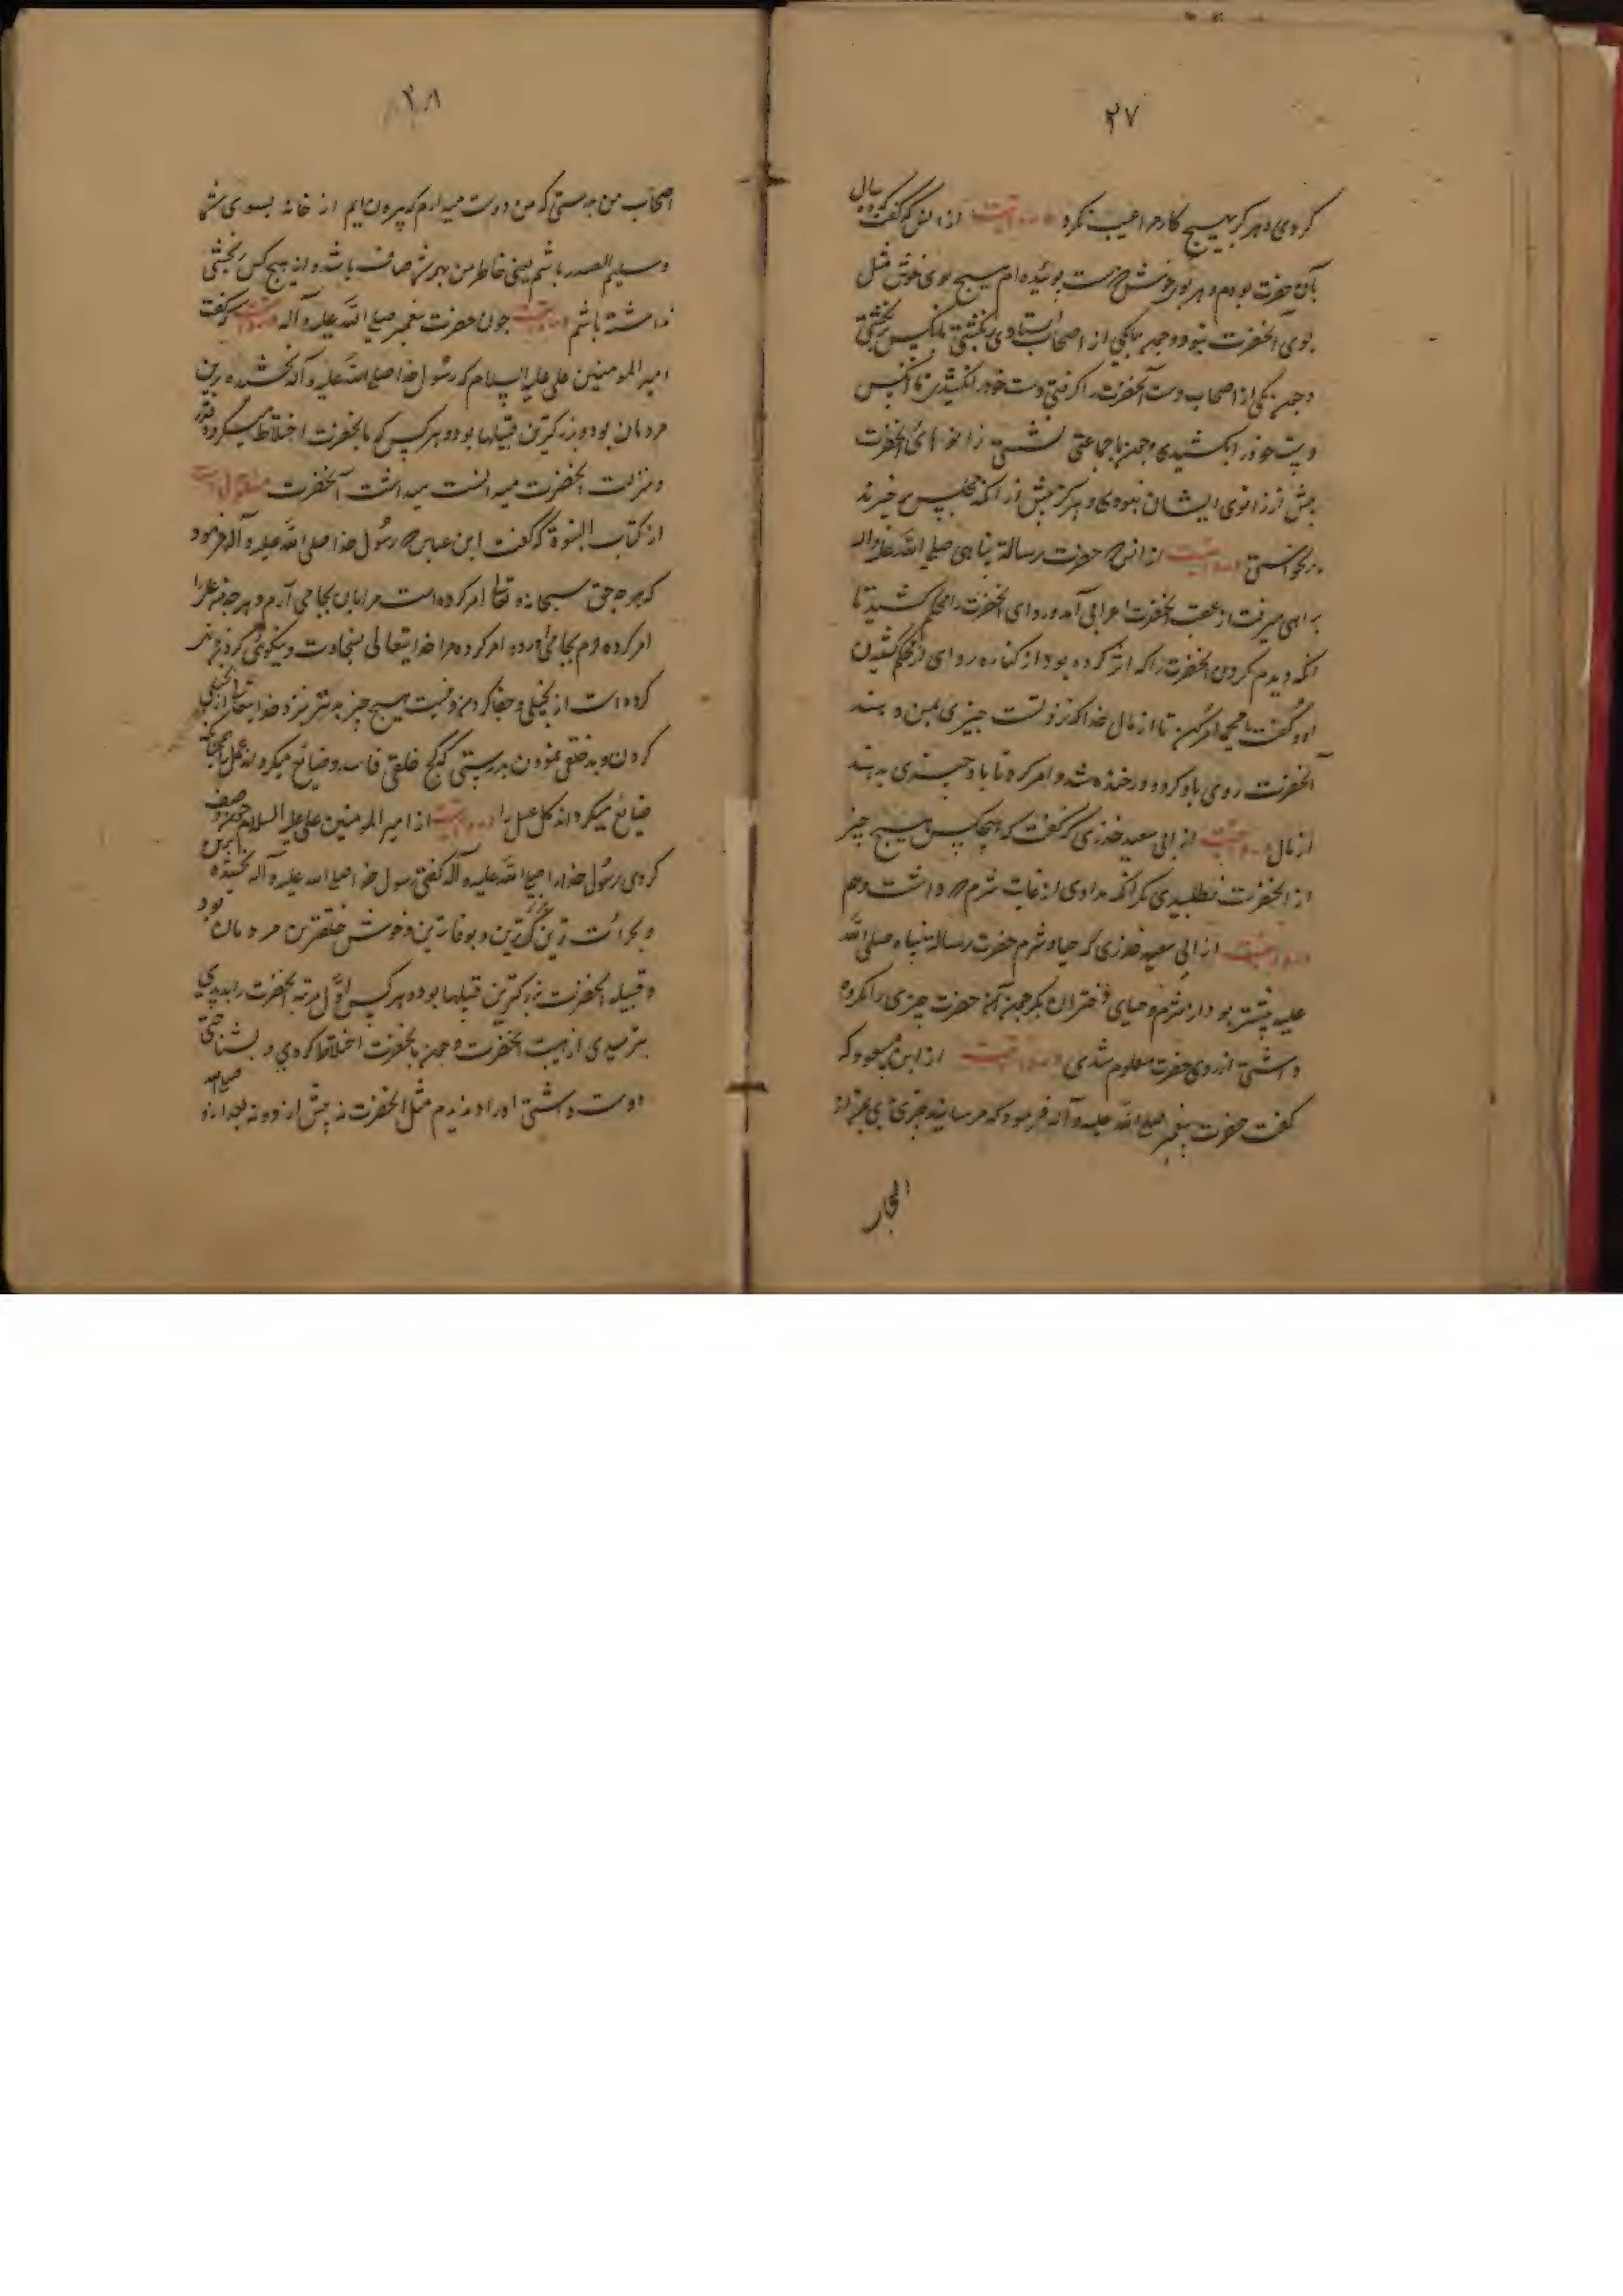 ۲۷
کردی و هرگز بهیچ کار مرا عیب نکرد روایت از انس که گفت ده سال
بآن حضرت بودم و هر بوی خوش که هست بوئیده ام هیچ بوی خوش مثل
بوی آنحضرت نبود و چون یکی از اصحاب ایستادی ننشستی تا آنکس ننشستی
و چون یکی از اصحاب دست آنحضرت را گرفتی دست خود را نکشیدی تا آنکس
دست خود را نکشیدی و چون با جماعتی نشستی زانوهای آنحضرت
پیش از زانوی ایشان نبودی و هرگز پیش از آنکه مجلس برخیزند
برنخواستی روایت از انس حضرت رسالة پناهی صلی الله علیه واله
براهی میرفت از عقب آنحضرت اعرابی آمد و ردای آنحضرت را محکم کشید تا
آنکه دیدم گردن آنحضرت را که اثر کرده بود از کناره ردای از محکم کشیدن
او و گفت یا محمد امر کن تا از مال خدا که نزد تست چیزی بمن دهند
آنحضرت روی باو کرد و در خنده شد و امر کرد تا باو چیزی بدهند
از مال روایت از ابی سعید خدری که گفت که هیچکس هیچ چیز
از آنحضرت نطلبیدی مگر آنکه دادی از غایت شرم که داشت وهم
روایت از ابی سعید خدری که حیا و شرم حضرت رسالة پناه صلی الله
علیه بیشتر بود از شرم و حیای دختران بکر چون آن حضرت چیزی را مکروه
داشتی از روی حضرت معلوم شدی روایت از ابن مسعود که
گفت حضرت پیغمبر صلی الله علیه وآله فرمود که مرسانید چیزی بمن از
اصحاب
۲۸
اصحاب من بدرستی که من دوست میدارم که بیرون آیم از خانه بسوی شما
وسلیم الصدر باشم یعنی خاطر من بهمه شما صاف باشد و از هیچ کس رنجشی
نداشته باشم روایت چون حضرت پیغمبر صلی الله علیه وآله روایت که گفت
امیر المومنین علی علیه السلام که رسول خدا صلی الله علیه وآله بخشنده ترین
مردمان بود و بزرگترین قبیلها بود و هر کس که بآنحضرت اختلاط میکرد و قدر
ومنزلت آنحضرت میدانست میداشت آنحضرت منقول است
از کتاب النبوة که گفت ابن عباس که رسول خدا صلی الله علیه وآله فرمود
که هر چه حق سبحانه تعالی امر کرده است مرا بآن بجا می آرم و هر چه من علی را
امر کرده ام بجا می آورد و امر کرده مرا خدایتعالی بسخاوت و نیکوئی کردن و منع
کرده است از بخیلی و جفا کردن و نیست هیچ چیز بدتر نزد خدایتعالی از بخیلی
کردن و بدخلقی نمودن بدرستی که کج خلقی فاسد و ضایع میکرداند عمل را چنانکه
ضایع میکرداند کل عسل را روایت از امیر المومنین علی علیه السلام که چون وصف
کردی رسول خدا را صلی الله علیه وآله گفتی رسول خدا صلی الله علیه وآله بخشنده ترین
و بجرائت ترین و راستگوترین و بوفا ترین و خوش خلقترین مردمان بود
و قبیله آنحضرت بزرگترین قبیلها بود و هر کس اول مرتبه آنحضرت را بدیدی
بترسیدی از هیبت آنحضرت و چون بآنحضرت اختلاط کردی و بشناختی
دوست داشتی او را و ندیدم مثل آنحضرت نه پیش از و و نه بعد از و صلی الله